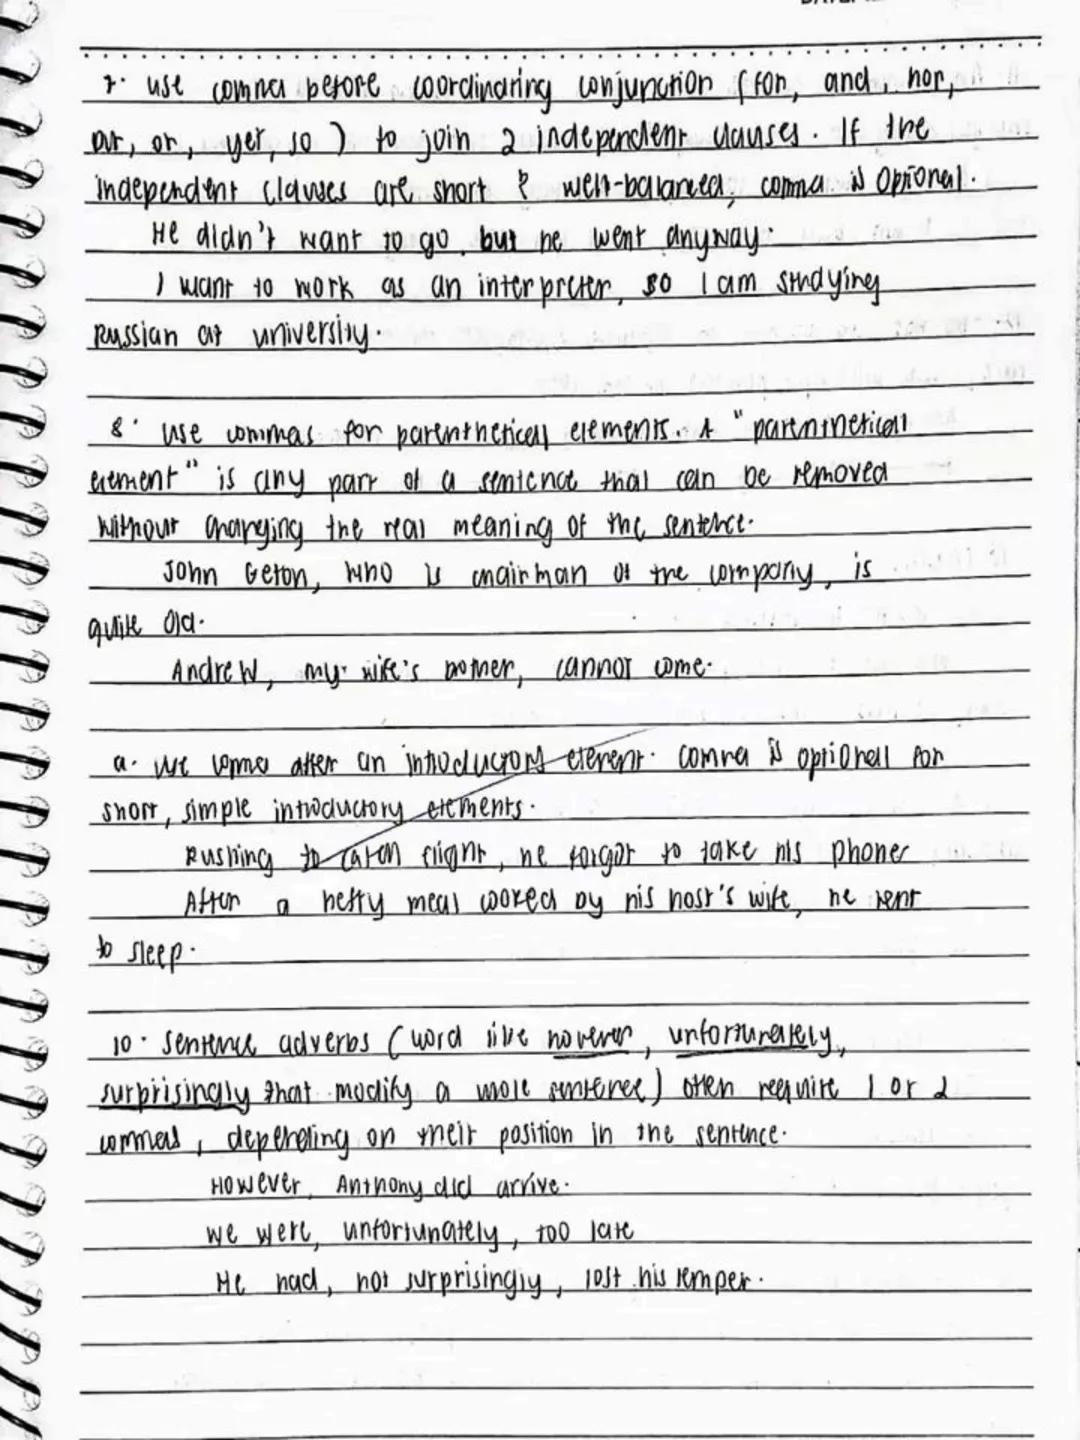 7. use comma before coordinating conjunction (for, and, nor,
but, or, yet, so) to join 2 independent clauses. If the
independent clauses are short & well-balanced, comma is optional.
He didn't want to go, but he went anyway.
I want to work as an interpreter, so I am studying
Russian at university.
8. Use commas for parenthetical elements. A "parenthetical
element" is any part of a sentence that can be removed
without changing the real meaning of the sentence.
John Geton, who is chairman of the company, is
quite old.
Andrew, my wife's brother, cannot come.
9. use comma after an introductory element. comma is optional for
short, simple introductory elements.
Rushing to catch flight, he forgot to take his phone
After a hefty meal cooked by his host's wife, he went
to sleep.
10. Sentence adverbs (word like however, unfortunately,
surprisingly that modify a whole sentence) often require 1 or 2
commas, depending on their position in the sentence.
However, Anthony did arrive.
We were, unfortunately, too late
He had, not surprisingly, lost his temper.